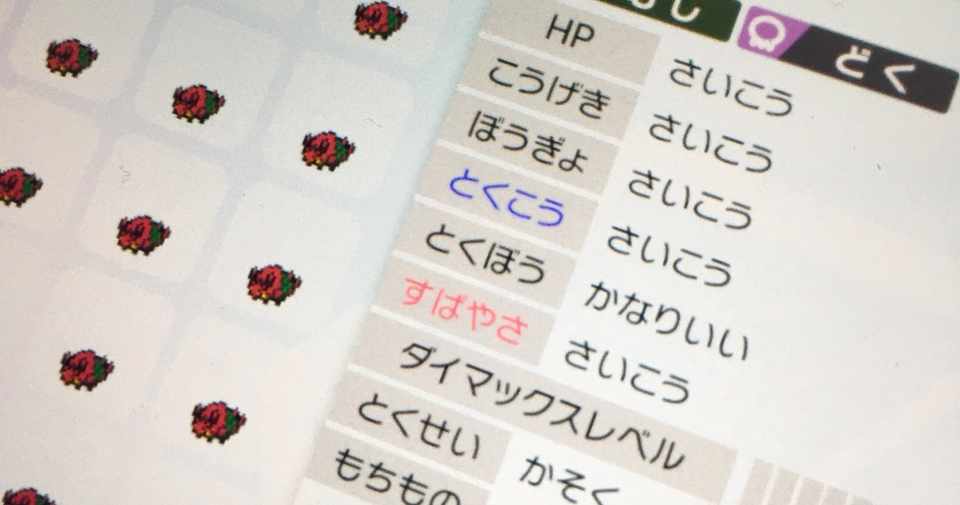 むし どく
HP さいこう
こうげき さいこう
ぼうぎょ さいこう
とくこう さいこう
とくぼう かなりいい
すばやさ さいこう
ダイマックスレベル
とくせい かそく
もちもの